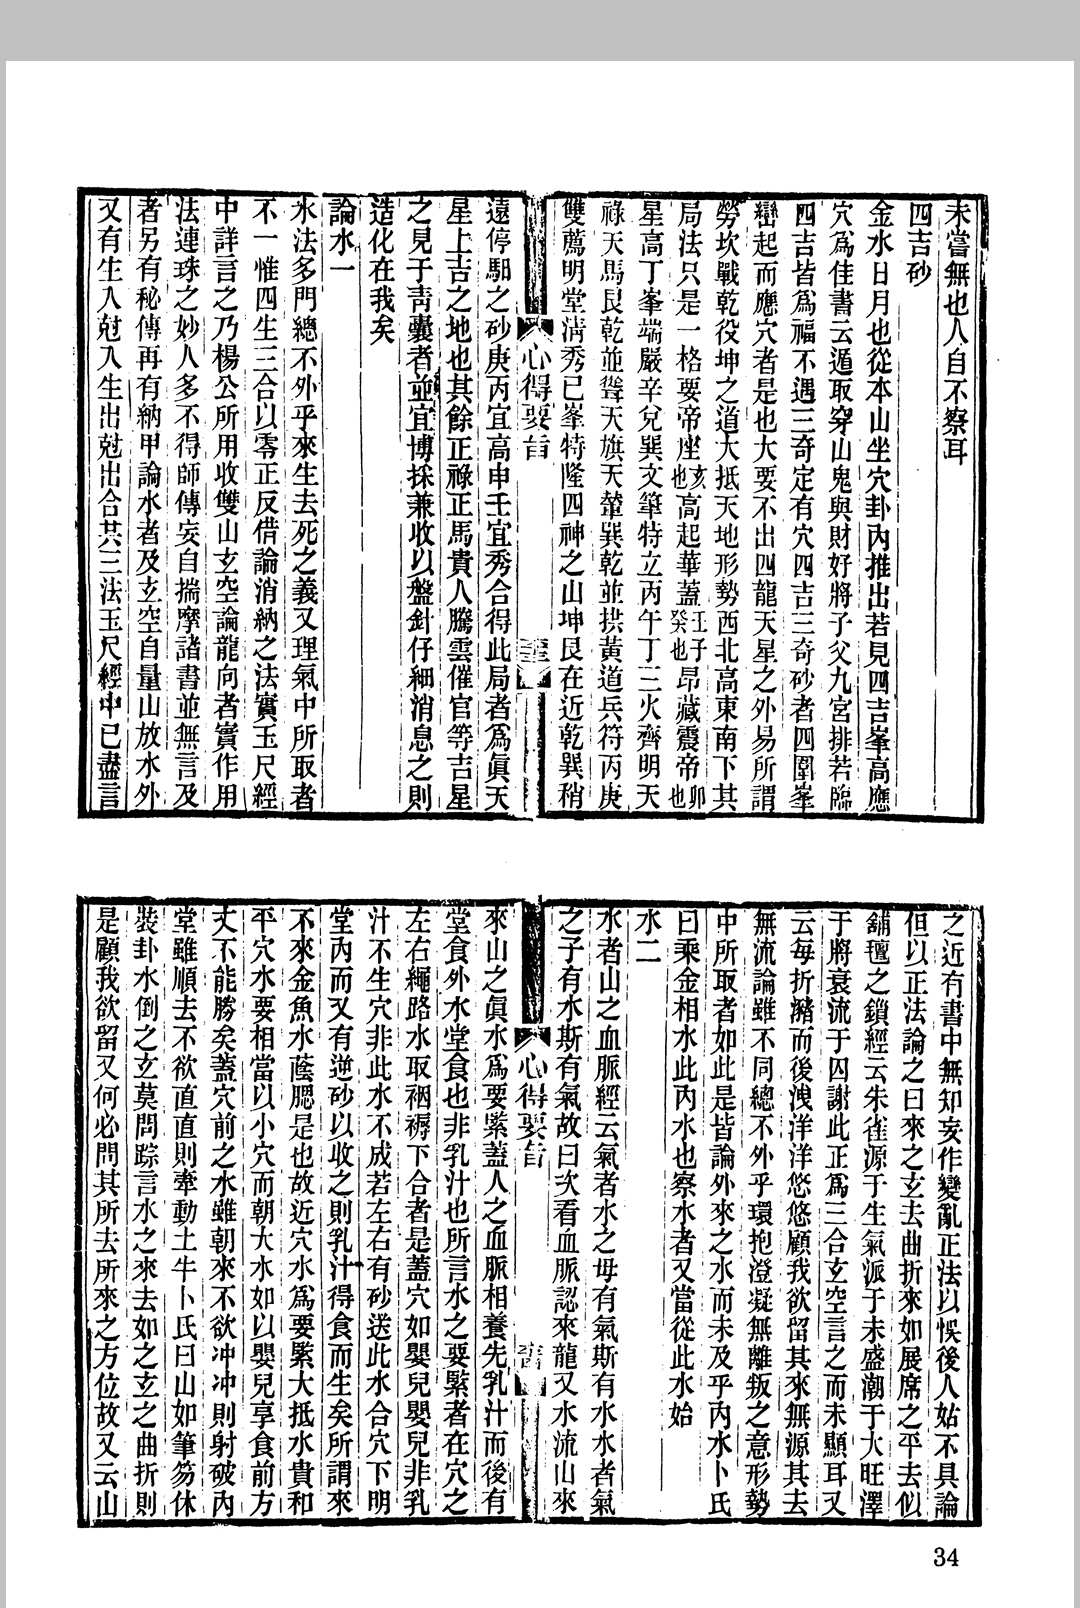 未嘗無也人自不察耳
四吉砂
金水日月也從本山坐穴卦內推出若見四吉峯高應
穴爲佳書云遁取穿山鬼與財好將子父九宮排若臨
四吉皆爲福不遇三奇定有穴四吉三奇砂者四圍峯
巒起而應穴者是也大要不出四龍天星之外易所謂
勞坎戰乾役坤之道大抵天地形勢西北高東南下其
局法只是一格要帝座亥也高起華蓋壬子癸也昂藏震帝卯也
星高丁峯端嚴辛兌巽文筆特立丙午丁三火齊明天
祿天馬艮乾並聳天旗天輦巽乾並拱黃道兵符丙庚
雙薦明堂淸秀已峯特隆四神之山坤艮在近乾巽稍
心得要旨
遠停驲之砂庚丙宜高申壬宜秀合得此局者爲眞天
星上吉之地也其餘正祿正馬貴人騰雲催官等吉星
之見于靑囊者並宜博採兼收以盤針仔細消息之則
造化在我矣
論水一
水法多門總不外乎來生去死之義又理氣中所取者
不一惟四生三合以零正反借論消納之法實玉尺經
中詳言之乃楊公所用收雙山玄空論龍向者實作用
法連珠之妙人多不得師傳妄自揣摩諸書並無言及
者另有秘傳再有納甲論水者及玄空自量山放水外
又有生入尅入生出尅出合共三法玉尺經中已盡言
之近有書中無知妄作變亂正法以悞後人姑不具論
但以正法論之曰來之玄去曲折來如展席之平去似
鋪氊之鎖經云朱雀源于生氣派于未盛潮于大旺澤
于將衰流于囚謝此正爲三合玄空言之而未顯耳又
云每折瀦而後洩洋洋悠悠顧我欲留其來無源其去
無流論雖不同總不外乎環抱澄凝無離叛之意形勢
中所取者如此是皆論外來之水而未及乎內水卜氏
曰乘金相水此內水也察水者又當從此水始
水二
水者山之血脈經云氣者水之母有氣斯有水水者氣
之子有水斯有氣故曰次看血脈認來龍又水流山來
心得要旨
來山之眞水爲要緊蓋人之血脈相養先乳汁而後有
堂食外水堂食也非乳汁也所言水之要緊者在穴之
左右繩路水取裀褥下合者是蓋穴如嬰兒嬰兒非乳
汁不生穴非此水不成若左右有砂送此水合穴下明
堂內而又有逆砂以收之則乳汁得食而生矣所謂來
不來金魚水蔭腮是也故近穴水爲要緊大抵水貴和
平穴水要相當以小穴而朝大水如以嬰兒享食前方
丈不能勝矣蓋穴前之水雖朝來不欲冲冲則射破內
堂雖順去不欲直直則牽動土牛卜氏曰山如筆笏休
裝卦水倒之玄莫問踪言水之來去如之玄之曲折則
是顧我欲留又何必問其所去所來之方位故又云山
34